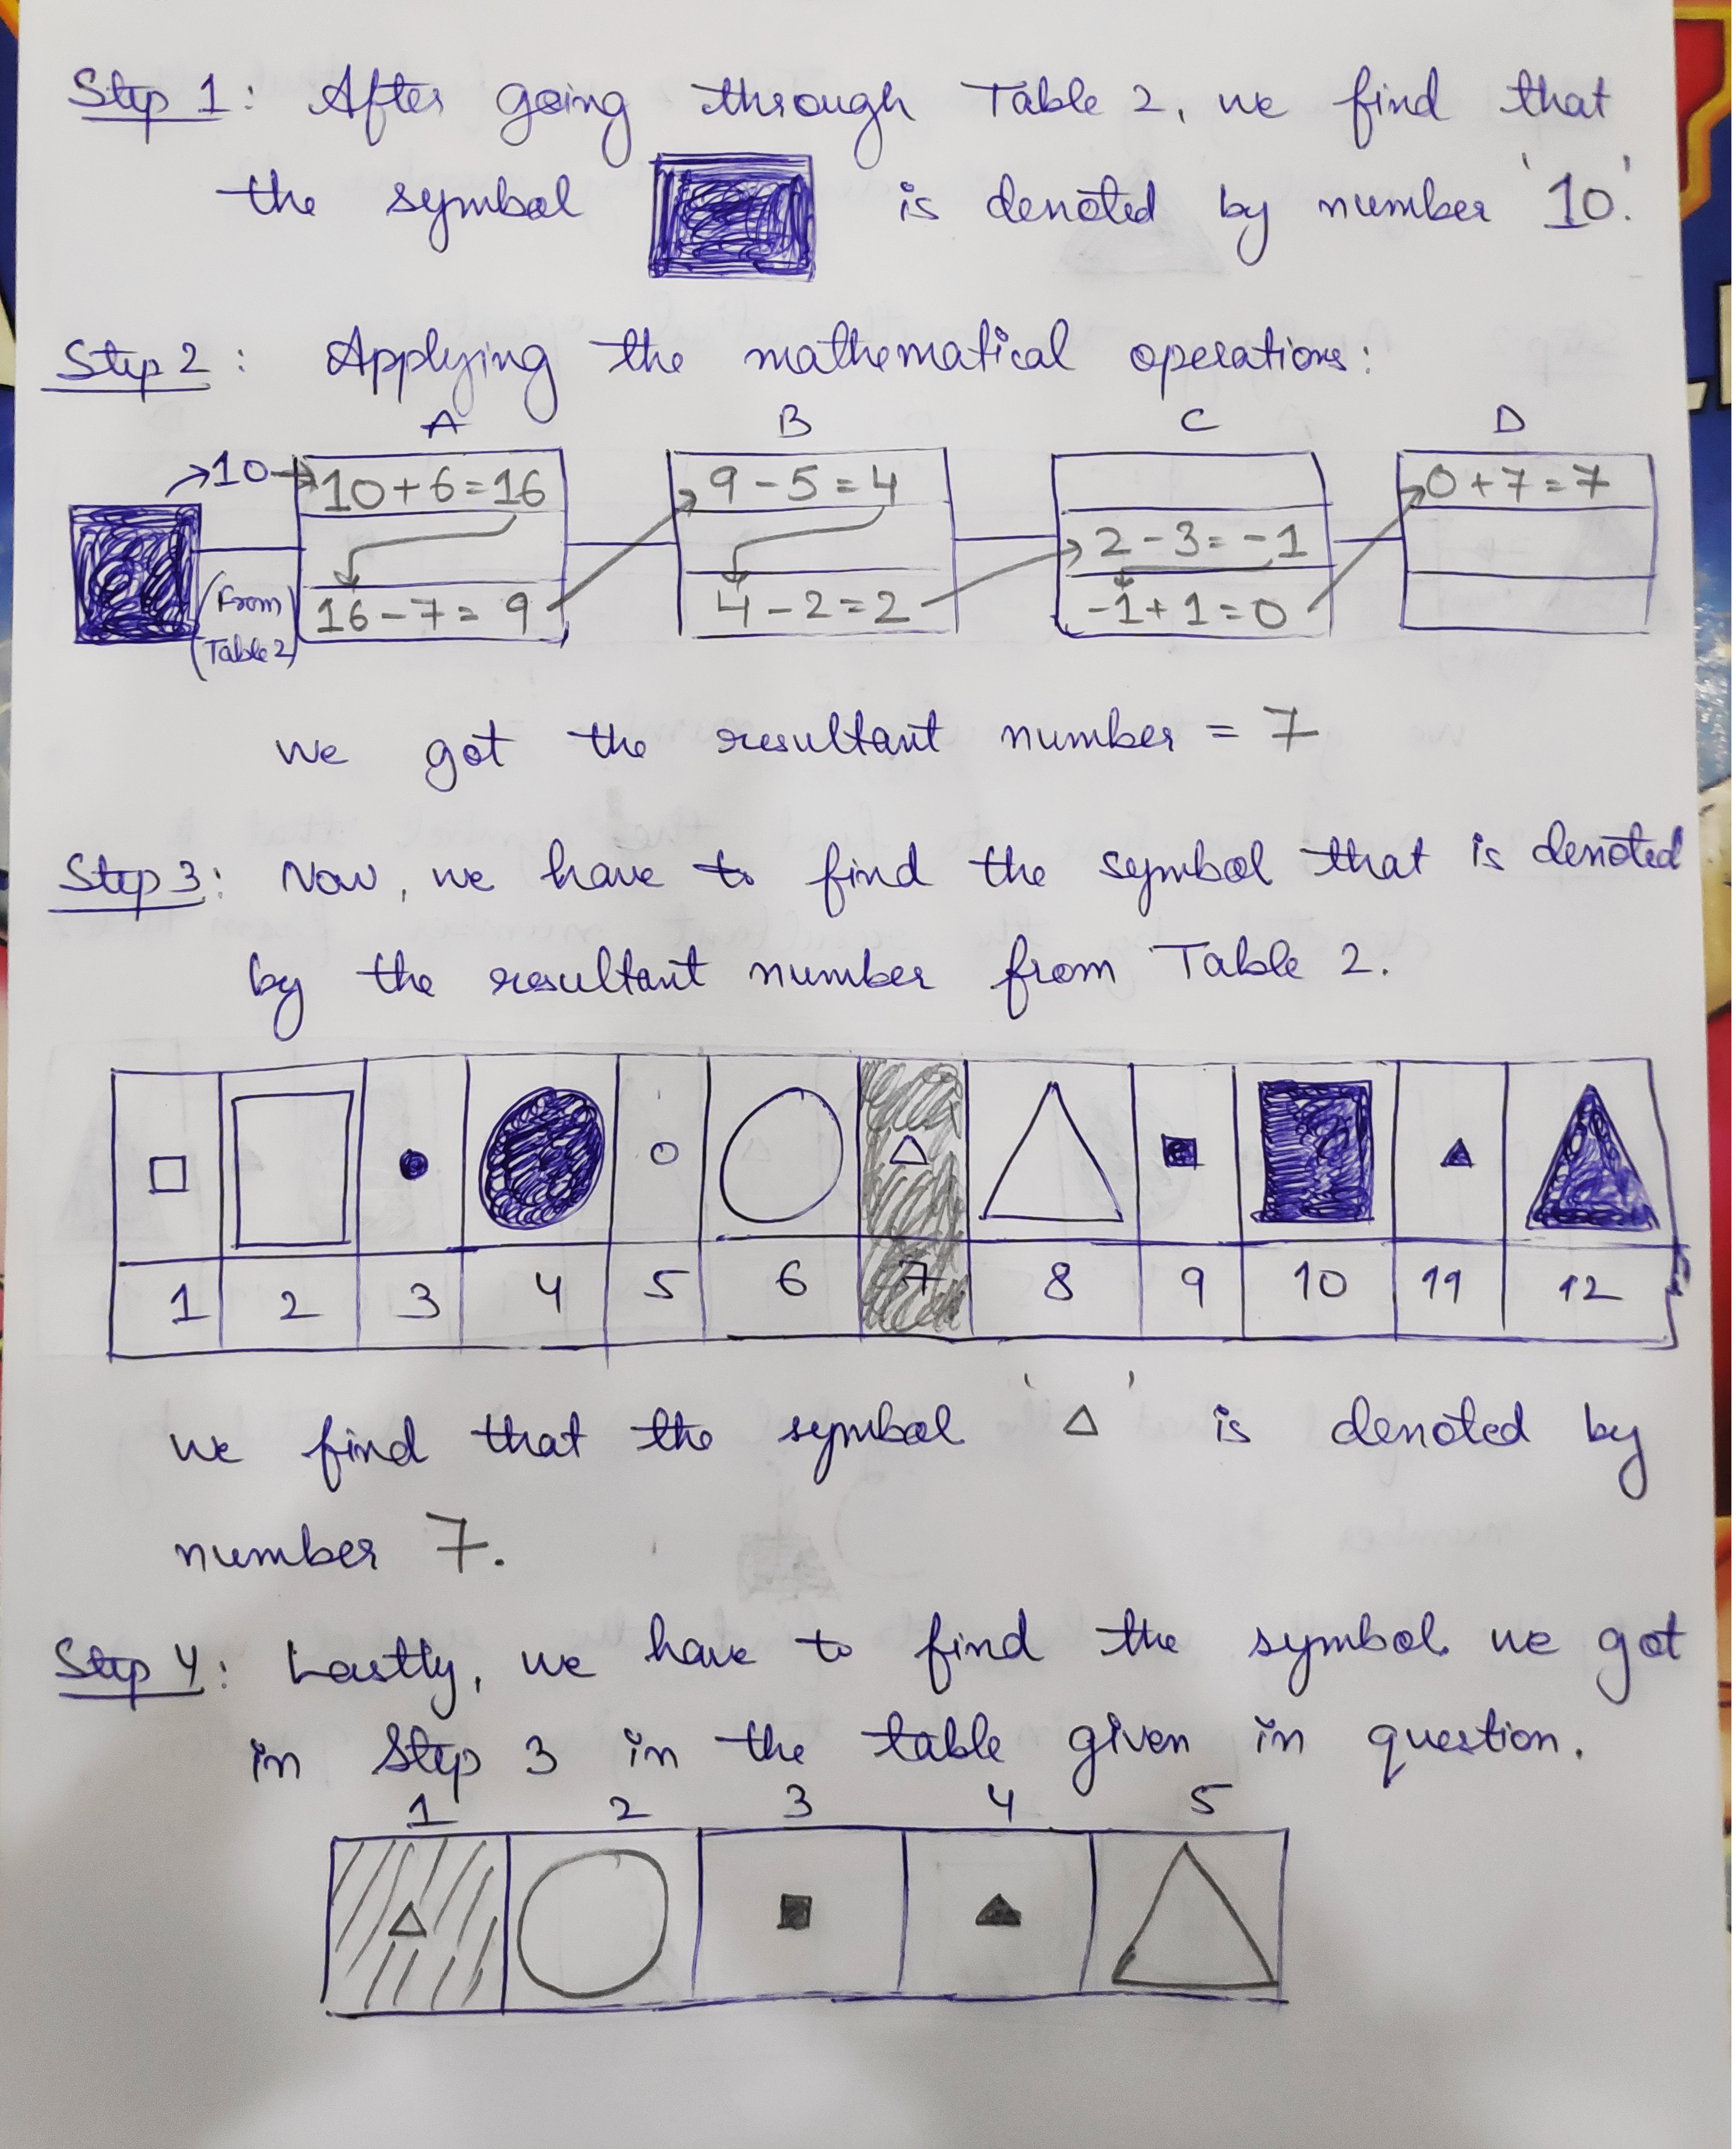 Step 1: After going through Table 2, we find that
the symbol is denoted by number '10'.
Step 2: Applying the mathematical operations:
A B C D
10 10+6=16 9-5=4 0+7=7
2-3=-1
(From Table 2) 16-7=9 4-2=2 -1+1=0
we got the resultant number = 7
Step 3: Now, we have to find the symbol that is denoted
by the resultant number from Table 2.
1 2 3 4 5 6 7 8 9 10 11 12
we find that the symbol '△' is denoted by
number 7.
Step 4: Lastly, we have to find the symbol we got
in Step 3 in the table given in question.
1 2 3 4 5